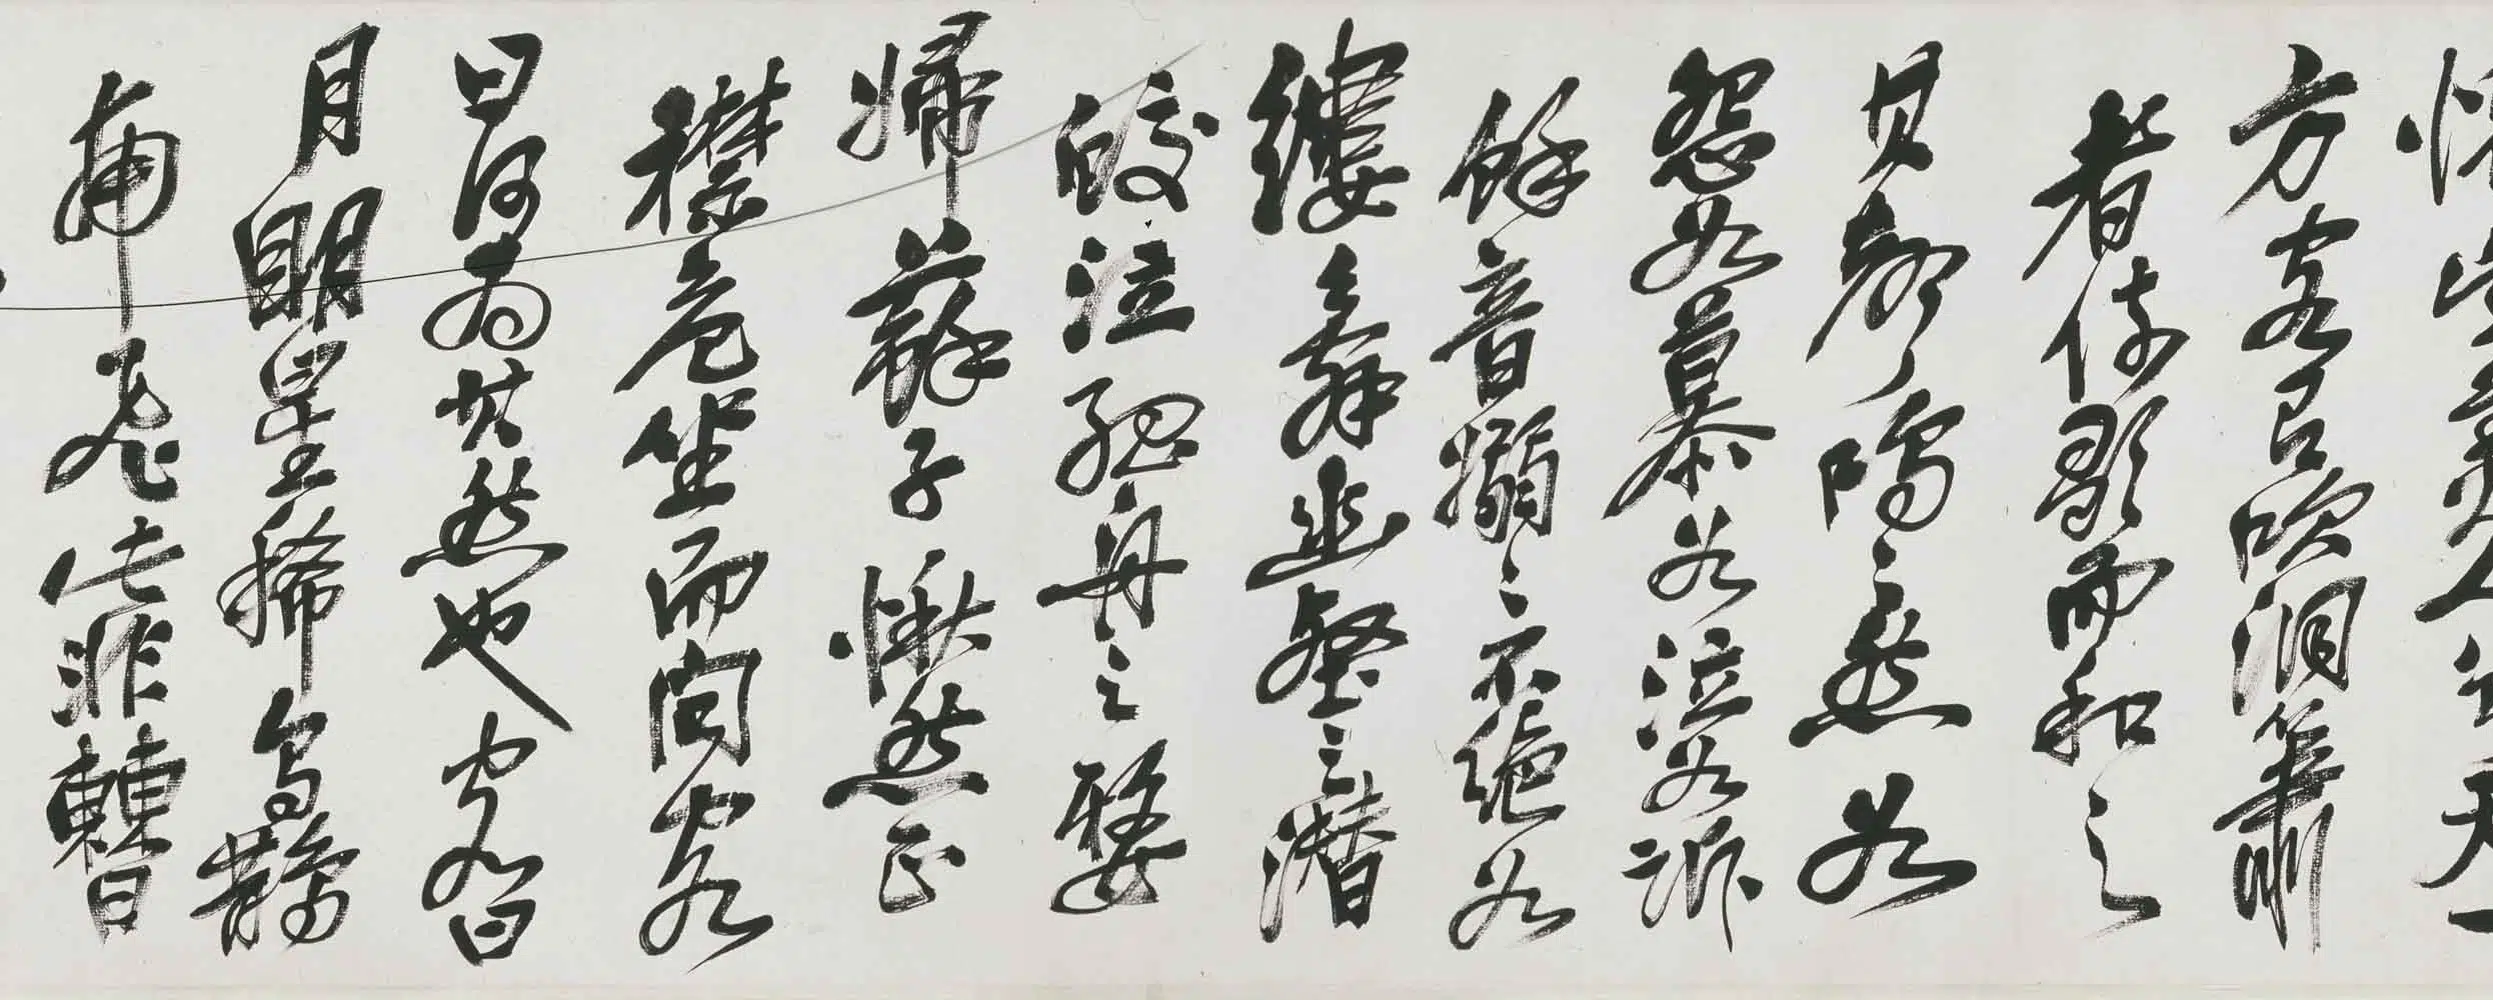 懷望美人兮天一
方客有吹洞簫
者倚歌而和之
其聲嗚〻然如
怨如慕如泣如訴
餘音嫋〻不絕如
縷舞幽壑之潛
蛟泣孤舟之嫠
婦蘇子愀然正
襟危坐而問客
曰何為其然也客曰
月明星稀烏鵲
南飛此非曹